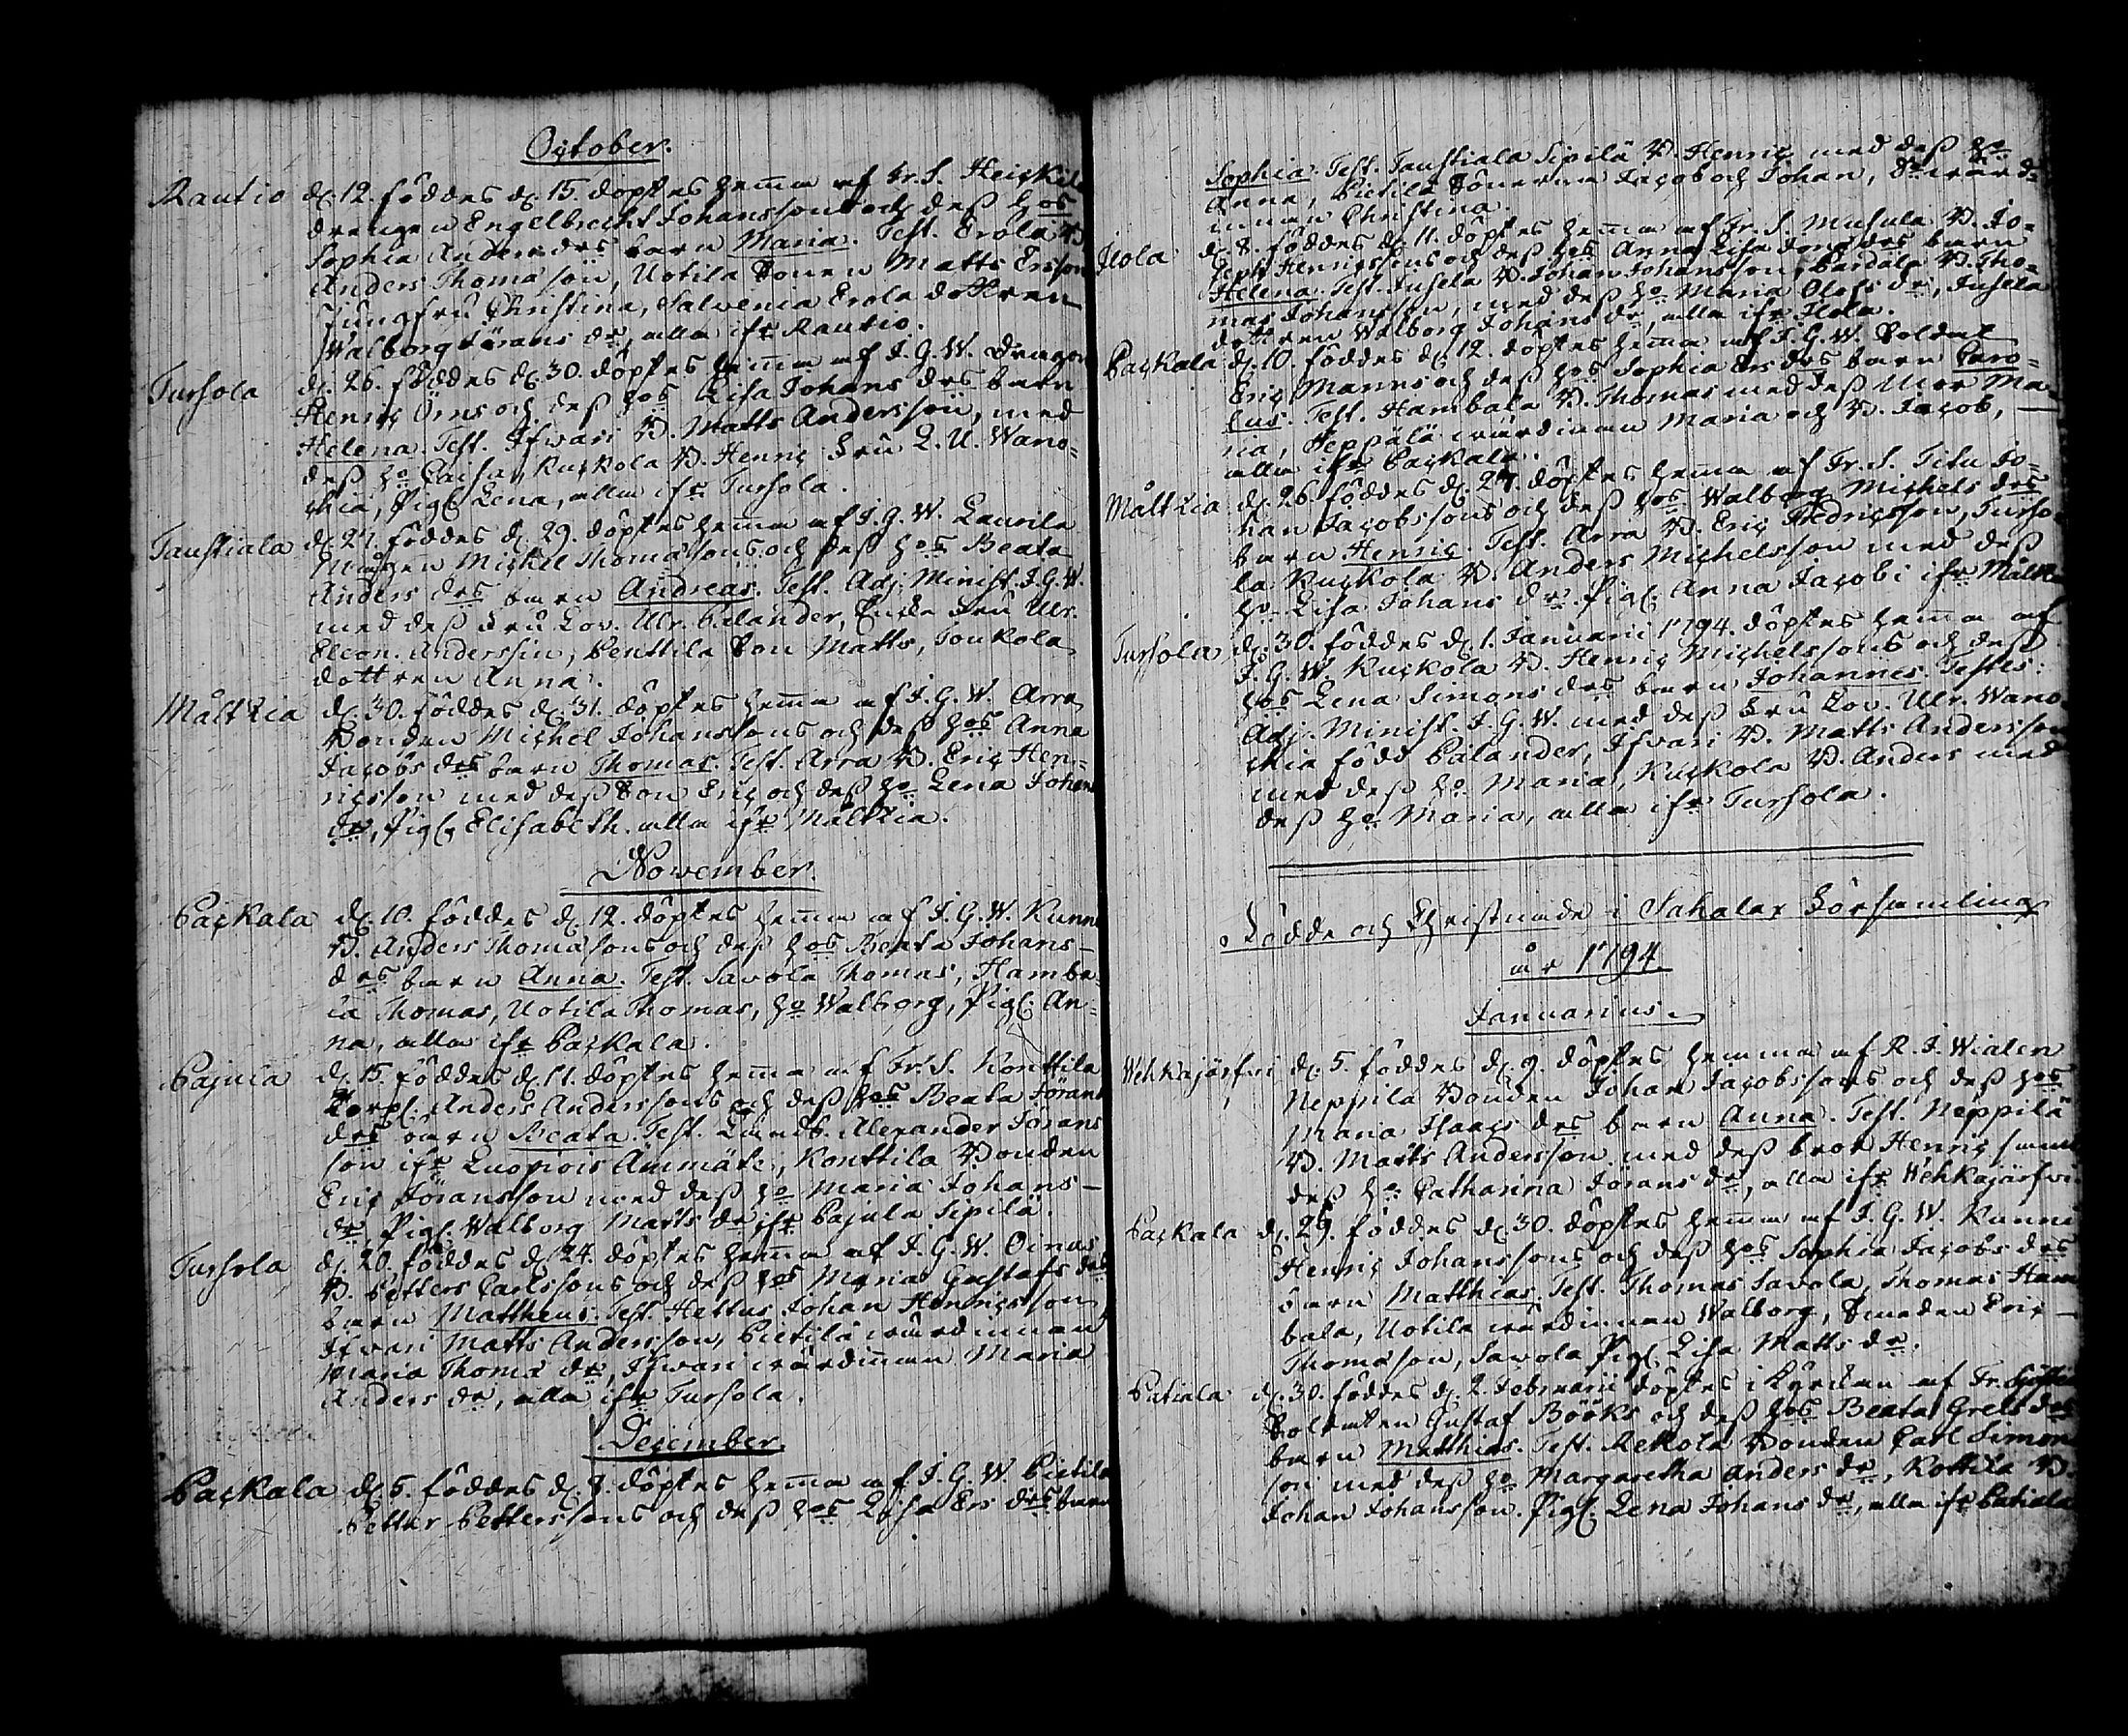 October.
Rautio d. 12. föddes d. 15. döptes hema af Fr. S. Heickilä
drängen Engelbrecht Johanssons och deß hos
Sophia Anders drs barn Maria. Test. Erola B.
Anders Thomasson, Uotila Sonen Matts Ersson
Jungfru Christina, Salvenia Erola dottren
Walborg Jörans dr, alla ifr Rautio.
Tursola d. 26. föddes d. 30. döptes hema af J. G. W. Dragon
Henriç Örns och deß hos Lisa Johans drs barn
Helena. Test. Ifvari B. Matts Andersson, med
deß ho Caisa, Kuckola B. Henriç Fru L. U. Wano-
chia, Pig. Lena, alla ifr Tursola.
Taustiala d. 27. föddes d. 29. döptes hema af J. G. W. Laurila
Mågen Michel Thomassons och deß hos Beata
Anders drs barn Andreas. Test. Adj. Minist. J. G. W.
med deß Fru Lov. Ulr. Calander, Enckefru Ulr.
Eleon. Anderssin, Penttila Son Matts, Joukola
dottren Anna.
Måltzia d. 30. föddes d. 31. döptes hema af J. G. W. Arra
Bonden Michel Johanssons och deß hos Anna
Jacobs drs barn Thomas. Test. Arra B. Eriç Hen-
riçsson med deß Son Eriç och deß ho Lena Johans
dr, Pig. Elisabeth. alla ifr Måltzia.
November.
Paçkala d. 10. föddes d. 12. döptes hema af J. G. W. Kunni
B. Anders Thomassons och deß hos Beata Johans-
drs barn Anna. Test. Savola Thomas, Hamba-
la Thomas, Uotila Thomas, ho Walborg, Pig. An-
na, alla ifr Paçkala.
Pajula d. 15. föddes d. 17. döptes hema af Fr. S. Konttila
Corpl. Anders Anderssons och deß hos Beata Jörans
drs barn Beata. Test. Landb. Alexander Jörans
son ifr Luopiois Ämmäte, Konttila Bonden
Eriç Jöransson med deß ho Maria Johans-
dr, Pig. Walborg Matts dr ifr Pajula Sipilä.
Tursola d. 20. föddes d. 24. döptes hema af J. G. W. Oinas
B. Petters Carlssons och deß hos Maria Gustafs drs
barn Mattheus. Test. Hettus Johan Henriçsson,
Ifvari Matts Andersson, Pietilä wärdinnan
Maria Thomas dr, Ifvari wärdinnan Maria
Anders dr, alla ifr Tursola.
December.
Paçkala d. 5. föddes d. 8. döptes hema af J. G. W. Pietilä
Petter Petterssons och deß hos Lisa Ers drs barn
Sophia. Test. Taustiala Sipilä B. Henriç med deß ho
Anna, Pietilä Sönerna Jacob och Johan, wärd-
innan Christina.
Ilola d. 8. föddes d. 11. döptes hema af Fr. S. Musula B. Jo-
seph Henriçssons och deß hos Anna Lisa Jons drs barn
Helena. Test. Jusela B. Johan Johansson, Pardala B. Tho-
mas Johansson, med deß ho Maria Olofs dr, Jusela
dottren Walborg Johans dr, alla ifr Ilola.
Paçkala d. 10. föddes d. 12. döptes hema af J. G. W. Soldat
Eriç Manns och deß hos Sophia Ers drs barn Caro-
lus. Test. Hambala B. Thomas med deß Mor Ma-
ria, Seppälä wärdinnan Maria och B. Jacob,
alla ifr Paçkala.
Måltzia d. 26. föddes d. 27. döptes hema af Fr. S. Titu Jo-
han Jacobssons och deß hos Walborg Michels drs
barn Henriç. Test. Arra B. Eriç Hedriçsson, Turso-
la Kuckola B. Anders Michelsson med deß
ho Lisa Johans dr. Pig. Anna Jacobi ifr Måltzia
Tursola d. 30. föddes d. 1. Januarii 1794. döptes hema af
J. G. W. Kuckola B. Henriç Michelssons och deß
hos Lena Simons drs barn Johannes. Testes:
Adj. Minist. J. G. W. med deß Fru Lov. Ulr. Wano-
chia född Calander, Ifvari B. Matts Andersson
med deß ho Maria, Kuckola B. Anders med
deß ho Maria, alla ifr Tursola.
Födde och Christnade i Sahalax Församling
år 1794.
Januarius.
Wehkajärfwi d. 5. föddes d. 9. döptes hemma af R. J. Wialen
Neppilä Bonden Johan Jacobssons och deß hos
Maria Isaacs drs barn Anna. Test. Neppilä
B. Matts Andersson med deß bror Henriç samt
deß ho Catharina Jörans dr, alla ifr Wehkajärfwi
Paçkala d. 29. föddes d. 30. döptes hema af J. G. W. Kunni
Henriç Johanssons och deß hos Sophia Jacobs drs
barn Matthias. Test. Thomas Savola, Thomas Ham-
bala, Uotila wärdinnan Walborg, Smeden Eriç
Thomasson, Savola Pig. Lisa Matts dr.
Patiala d. 30. föddes d. 2. Februarii döptes i Kyrckan af Fr.
Soldaten Gustaf Bööks och deß hos Beata Grels drs
barn Matthias. Test. Rekola Bonden Carl Simons
son med deß ho Margaretha Anders dr, Kottila B.
Johan Johansson. Pig. Lena Johans dr, alla ifr Patiala